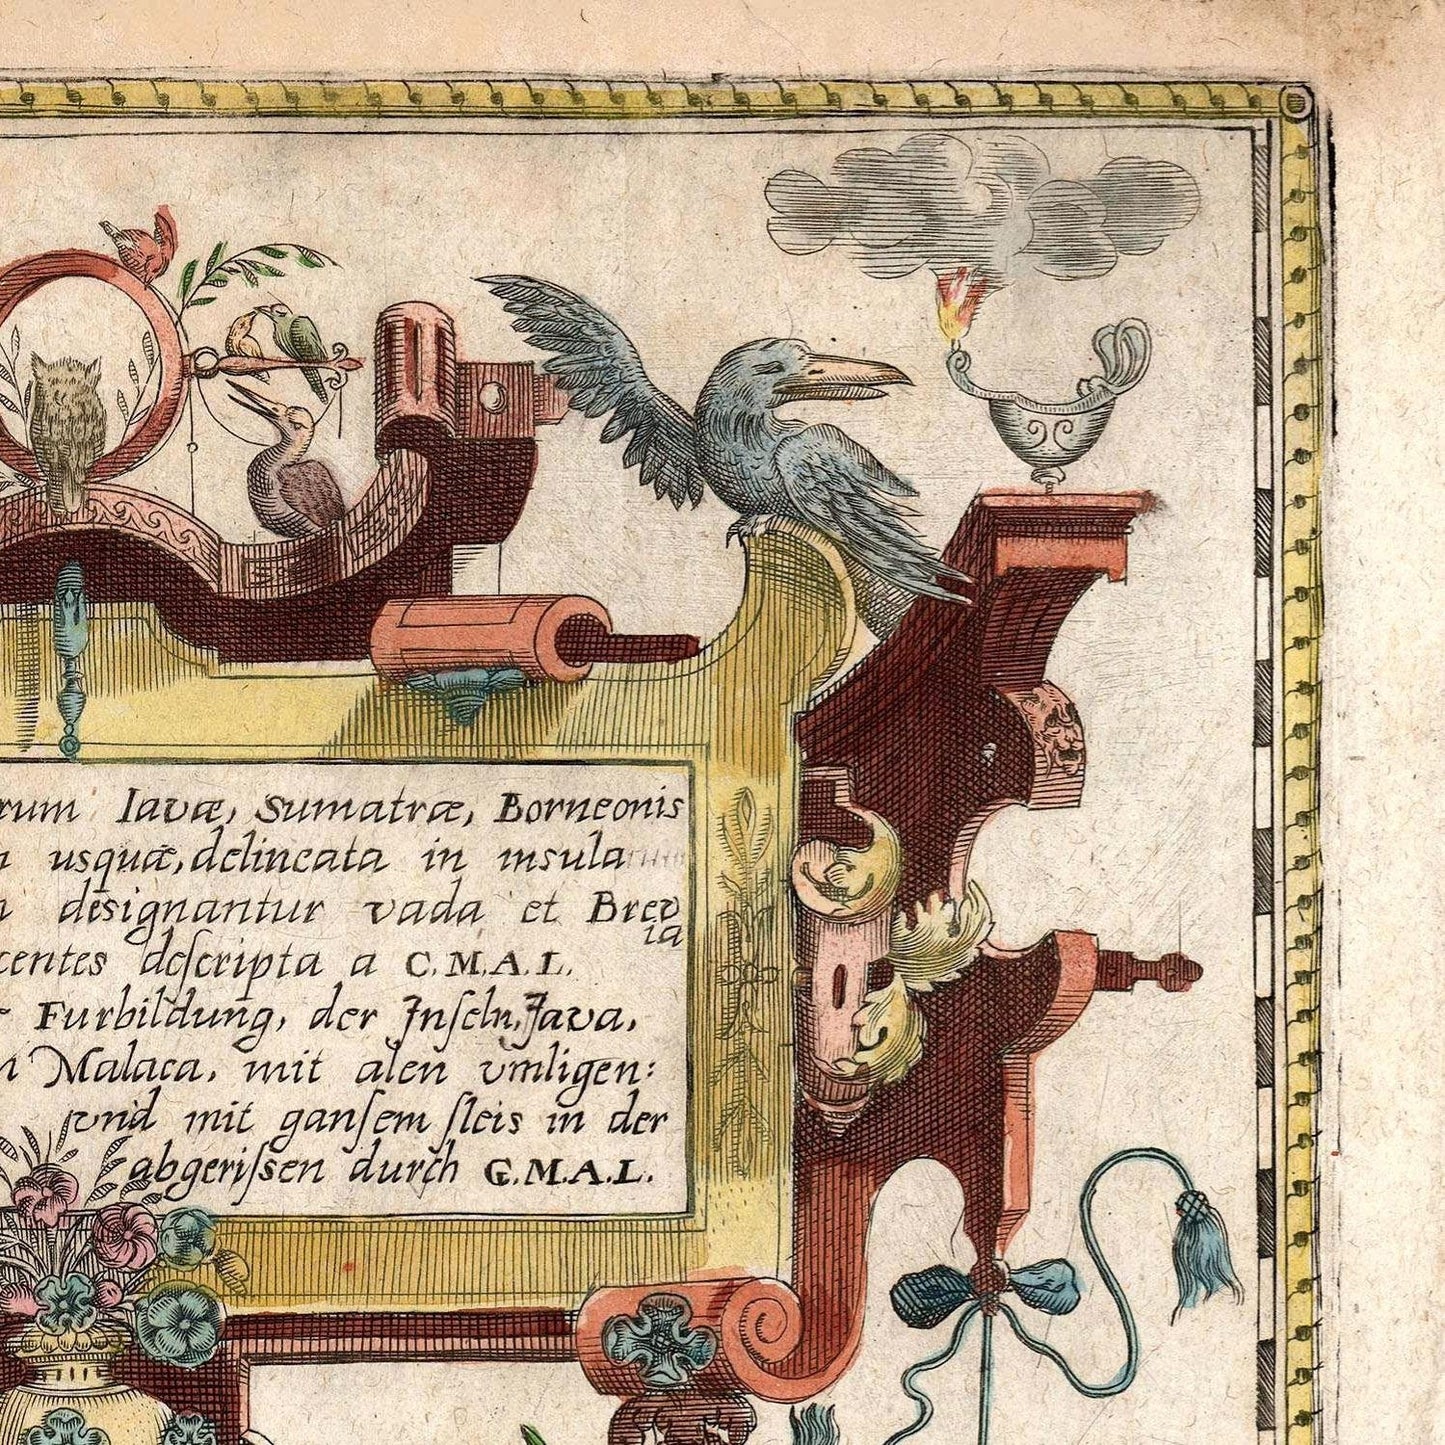 rum Iavæ, Sumatræ, Borneonis
usquæ, delineata in insularum
designantur vada et Brev
ia
centes deſcripta a C.M.A.L.
Furbildung, der Jnſeln, Java,
Malaca, mit alen vmligen:
vnd mit ganſem fleis in der
abgeriſſen durch G.M.A.L.